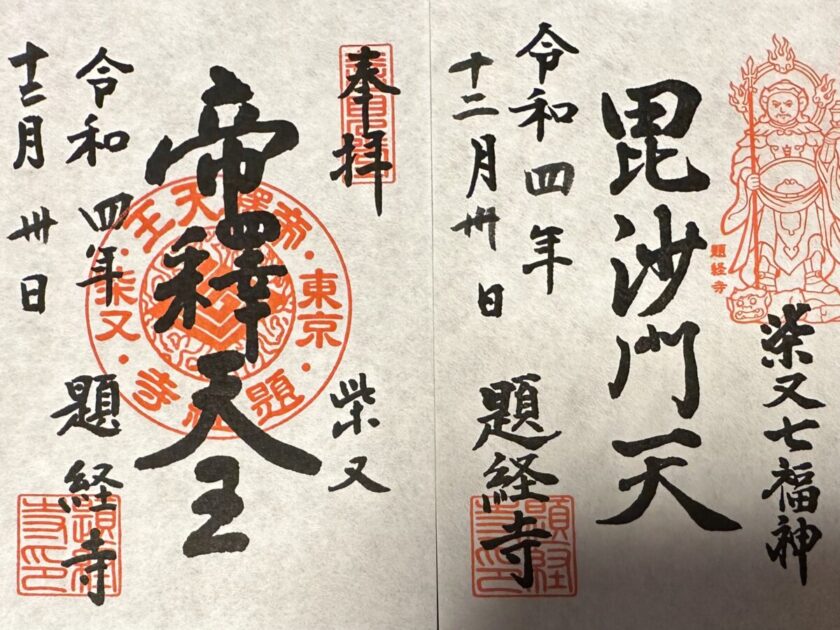 柴又七福神
題経寺
毘沙門天
令和四年
十二月卅日
題経寺
題経寺印
奉拝
柴又
帝釋天王
帝釋天王・東京・題経寺・柴又・
令和四年
十二月卅日
題経寺
題経寺印